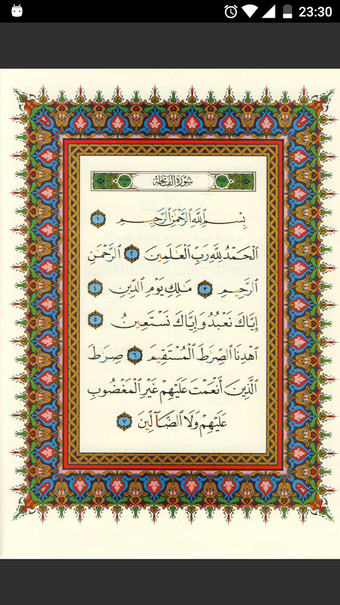 23:30
سُورَةُ الفَاتِحَةِ
بِسْمِ اللَّهِ الرَّحْمَٰنِ الرَّحِيمِ ١
الْحَمْدُ لِلَّهِ رَبِّ الْعَٰلَمِينَ ٢ الرَّحْمَٰنِ
الرَّحِيمِ ٣ مَٰلِكِ يَوْمِ الدِّينِ ٤
إِيَّاكَ نَعْبُدُ وَإِيَّاكَ نَسْتَعِينُ ٥
اهْدِنَا الصِّرَٰطَ الْمُسْتَقِيمَ ٦ صِرَٰطَ
الَّذِينَ أَنْعَمْتَ عَلَيْهِمْ غَيْرِ الْمَغْضُوبِ
عَلَيْهِمْ وَلَا الضَّآلِّينَ ٧